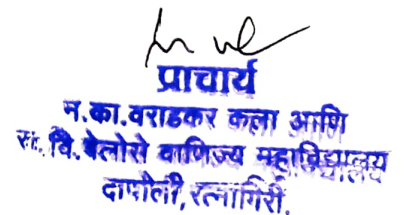 प्राचार्य
न.का.वराडकर कला आणि
वि. बेलोसे वाणिज्य महाविद्यालय
दापोली, रत्नागिरी.